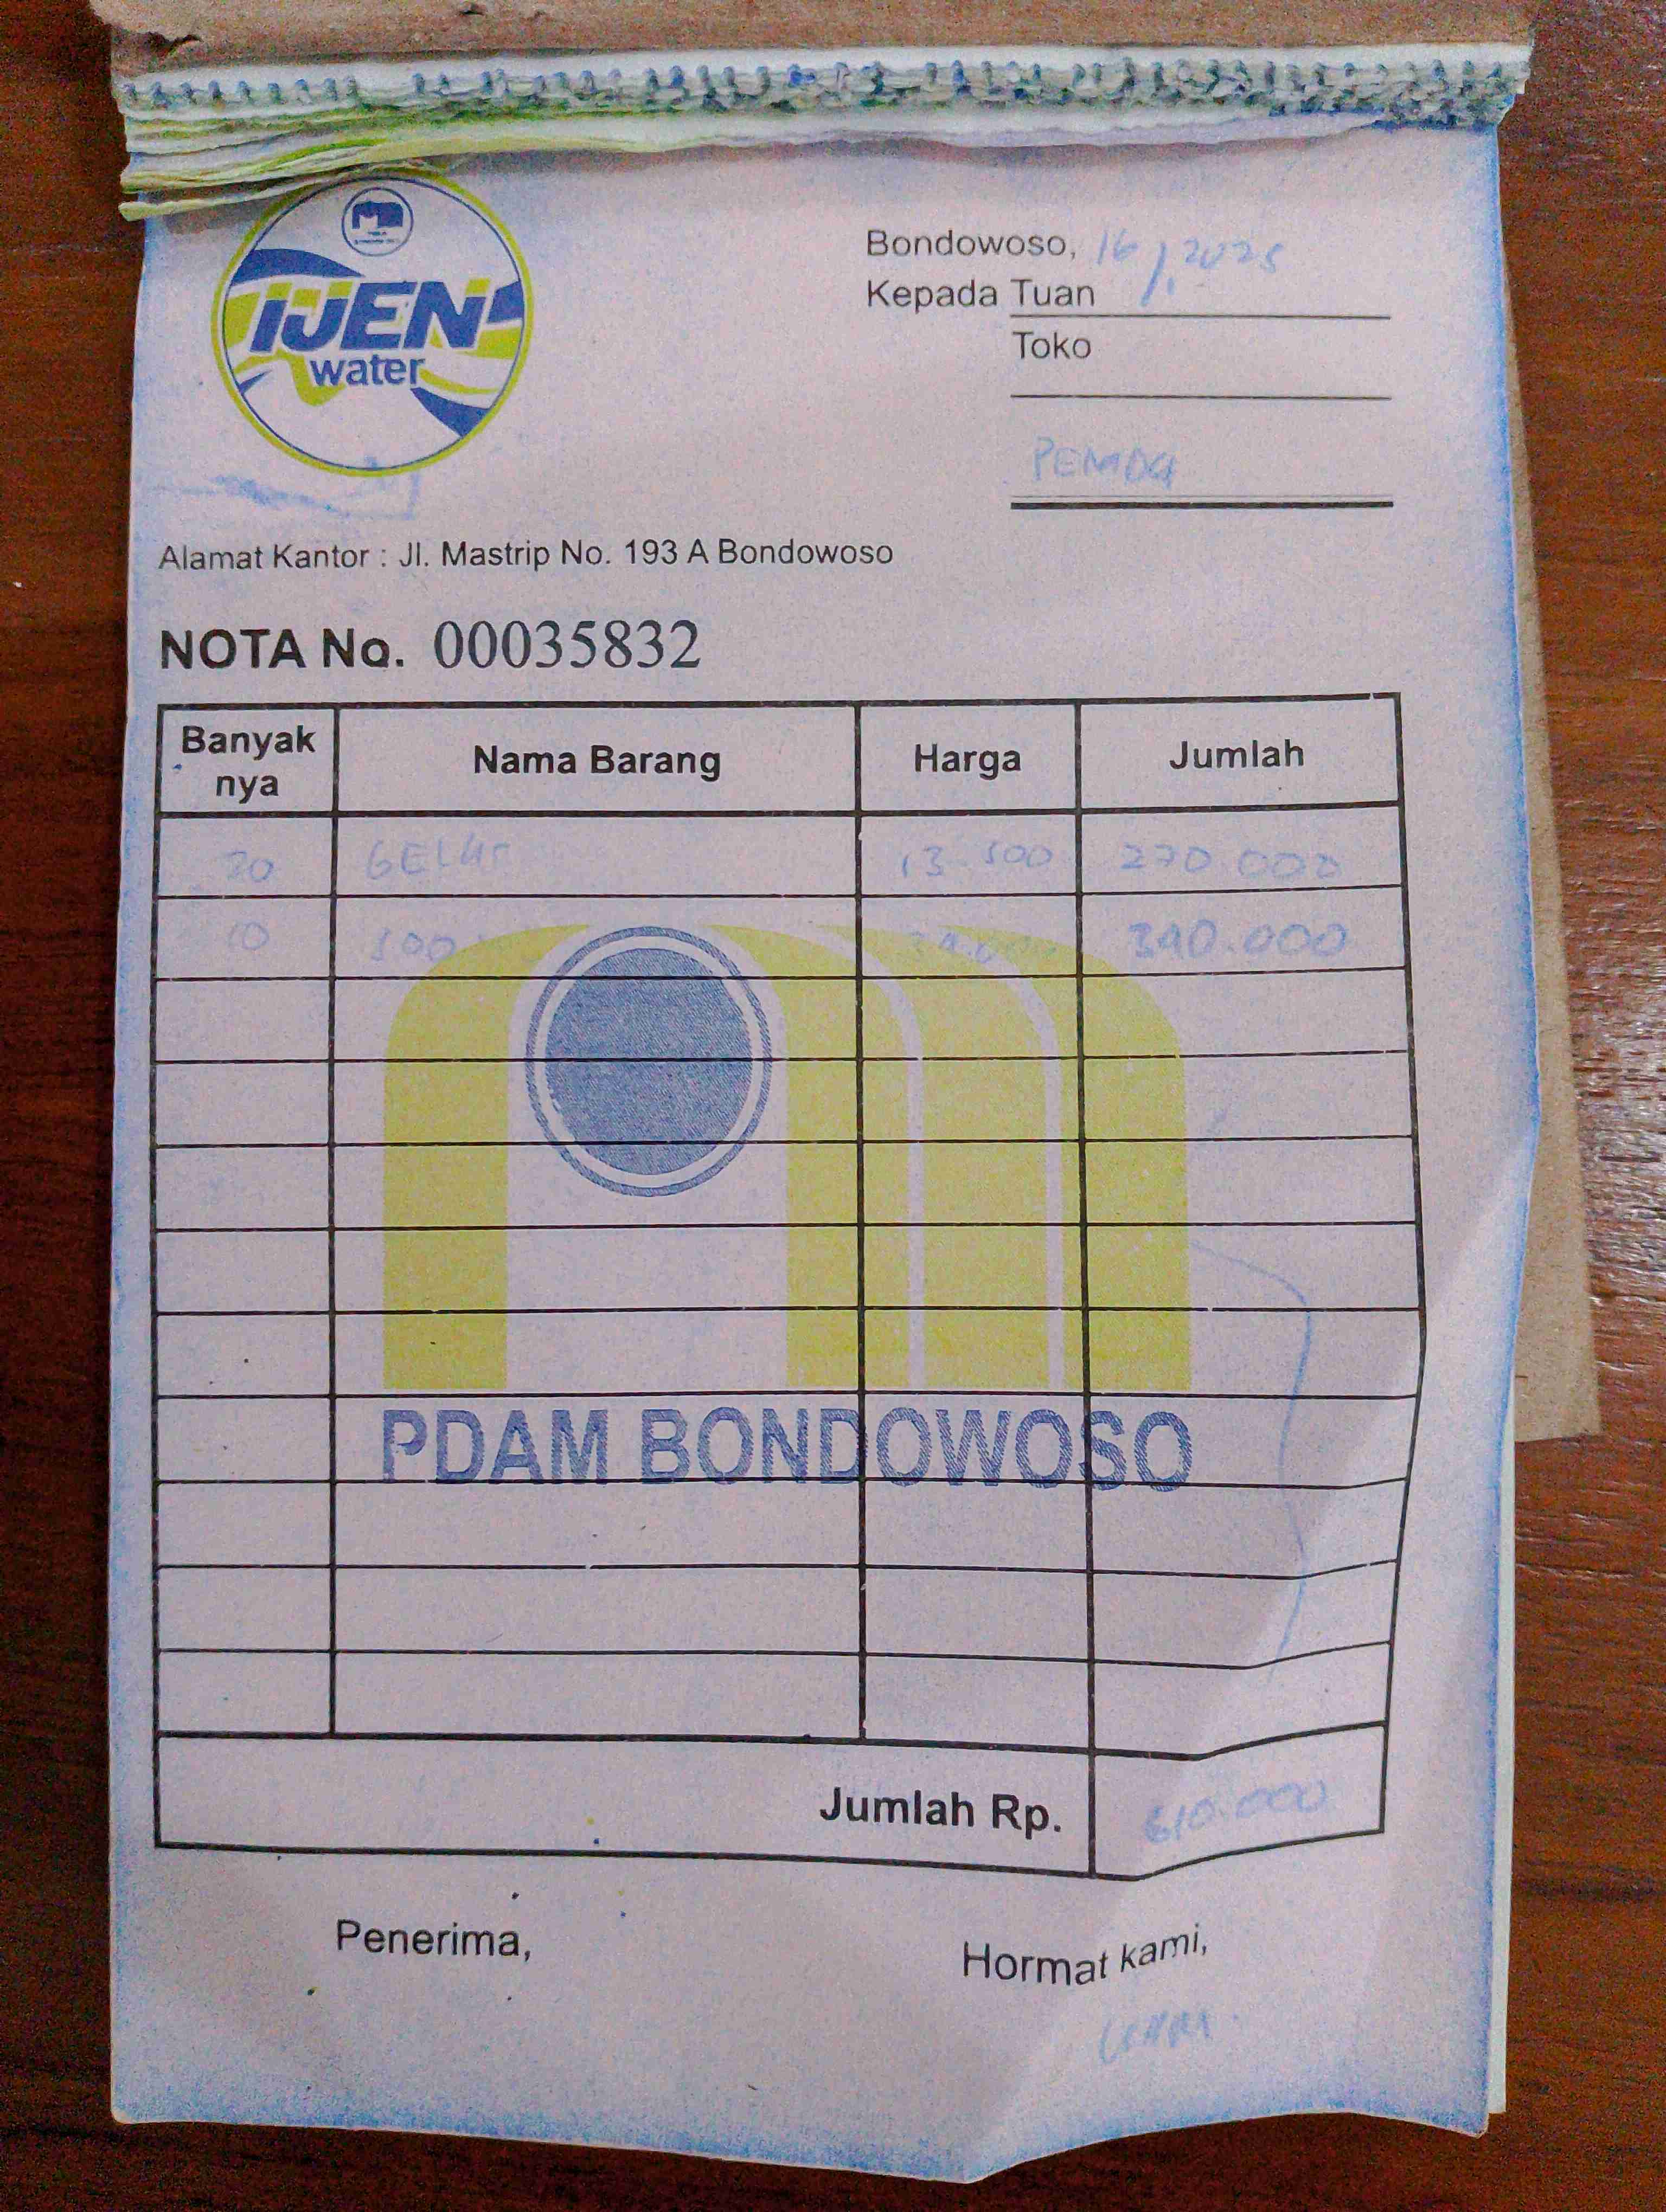 IJEN
water
Bondowoso, 16/1 2025
Kepada Tuan
Toko
PEMDA
Alamat Kantor : Jl. Mastrip No. 193 A Bondowoso
NOTA No. 00035832
Banyak nya Nama Barang Harga Jumlah
20 GELAS 13.500 270.000
10 500 34.000 340.000
PDAM BONDOWOSO
Jumlah Rp. 610.000
Penerima,
Hormat kami,